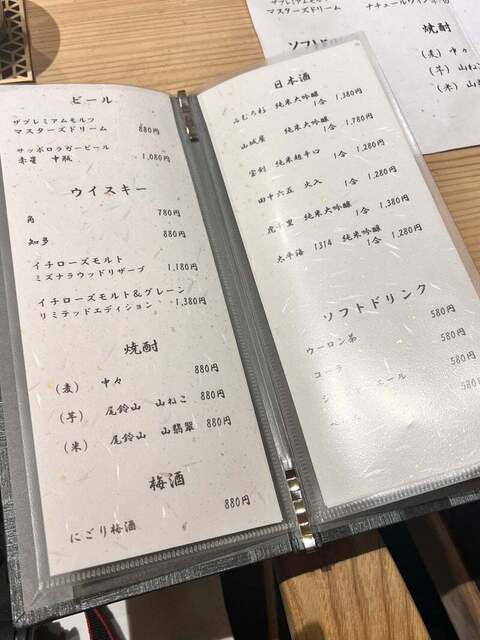 ビール
ザプレミアムモルツ
マスターズドリーム 880円
サッポロラガービール
赤星 中瓶 1,080円
ウイスキー
角 780円
知多 880円
イチローズモルト
ミズナラウッドリザーブ 1,180円
イチローズモルト&グレーン
リミテッドエディション 1,380円
焼酎
(麦) 中々 880円
(芋) 尾鈴山 山ねこ 880円
(米) 尾鈴山 山翡翠 880円
梅酒
にごり梅酒 880円
日本酒
ふむろ杉 純米大吟醸 1合 1,380円
山城屋 純米大吟醸 1合 1,780円
宝剣 純米超辛口 1合 1,280円
田中六五 火入 1合 1,280円
純米大吟醸 1合 1,380円
太平海 1314 純米吟醸 1合 1,280円
ソフトドリンク
ウーロン茶 580円
コーラ 580円
エール 580円
580円
ザプレミアムモルツ
マスターズドリーム
ナチュールワイン
ソフトド
焼酎
(麦) 中々
(芋) 山ねこ
(米) 山